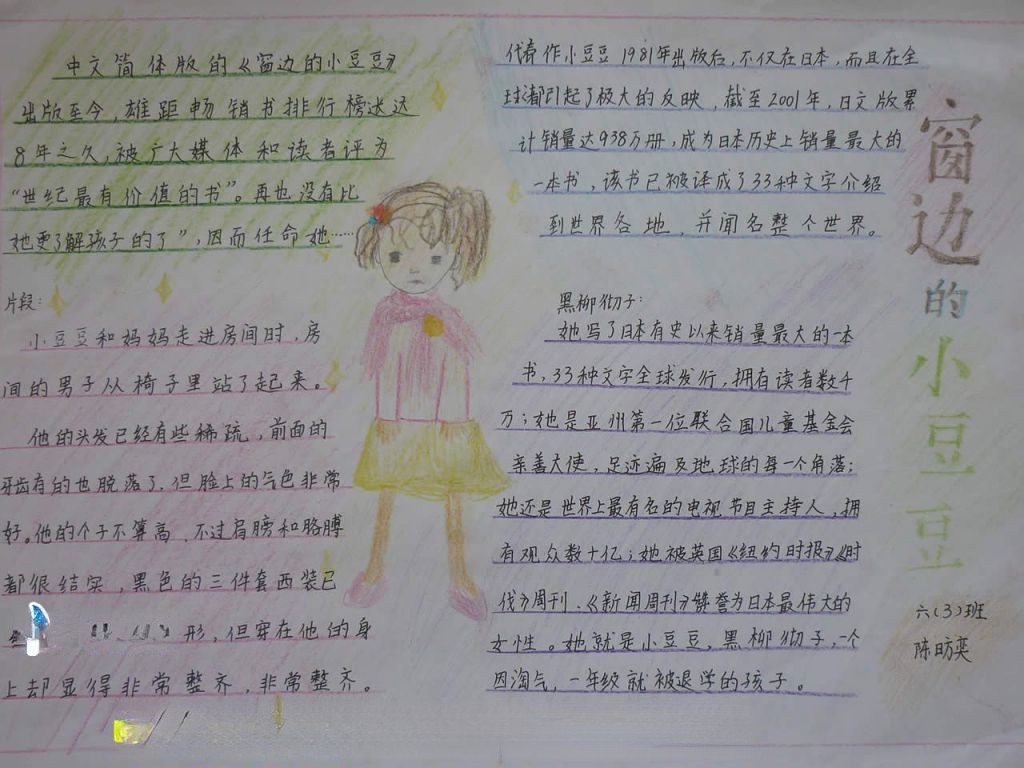 中文简体版的《窗边的小豆豆》
出版至今，雄距畅销书排行榜达达
8年之久，被广大媒体和读者评为
“世纪最有价值的书”。再也没有比
她更了解孩子的了”，因而任命她……
片段：
小豆豆和妈妈走进房间时，房
间的男子从椅子里站了起来。
他的头发已经有些稀疏，前面的
牙齿有的也脱落了，但脸上的气色非常
好。他的个子不算高，不过肩膀和胳膊
都很结实，黑色的三件套西装已
形，但穿在他的身
上却显得非常整齐，非常整齐。
代表作小豆豆1981年出版后，不仅在日本，而且在全
球都引起了极大的反映，截至2001年，日文版累
计销量达938万册，成为日本历史上销量最大的
一本书，该书已被译成了33种文字介绍
到世界各地，并闻名整个世界。
黑柳彻子：
她写了日本有史以来销量最大的一本
书，33种文字全球发行，拥有读者数千
万；她是亚州第一位联合国儿童基金会
亲善大使，足迹遍及地球的每一个角落；
她还是世界上最有名的电视节目主持人，拥
有观众数十亿；她被英国《纽约时报》《时
代》周刊、《新闻周刊》誉为日本最伟大的
女性。她就是小豆豆，黑柳彻子，一个
因淘气，一年级就被退学的孩子。
窗边的小豆豆
六(3)班
陈昉奕